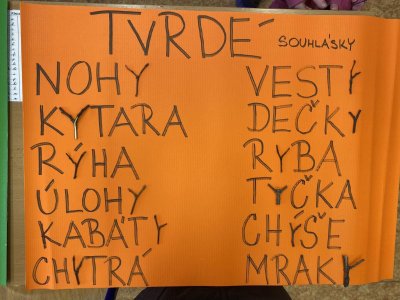 TVRDÉ SOUHLÁSKY
NOHY
KYTARA
RÝHA
ÚLOHY
KABÁTY
CHYTRÁ
VESTY
DEČKY
RYBA
TYČKA
CHÝŠE
MRAKY